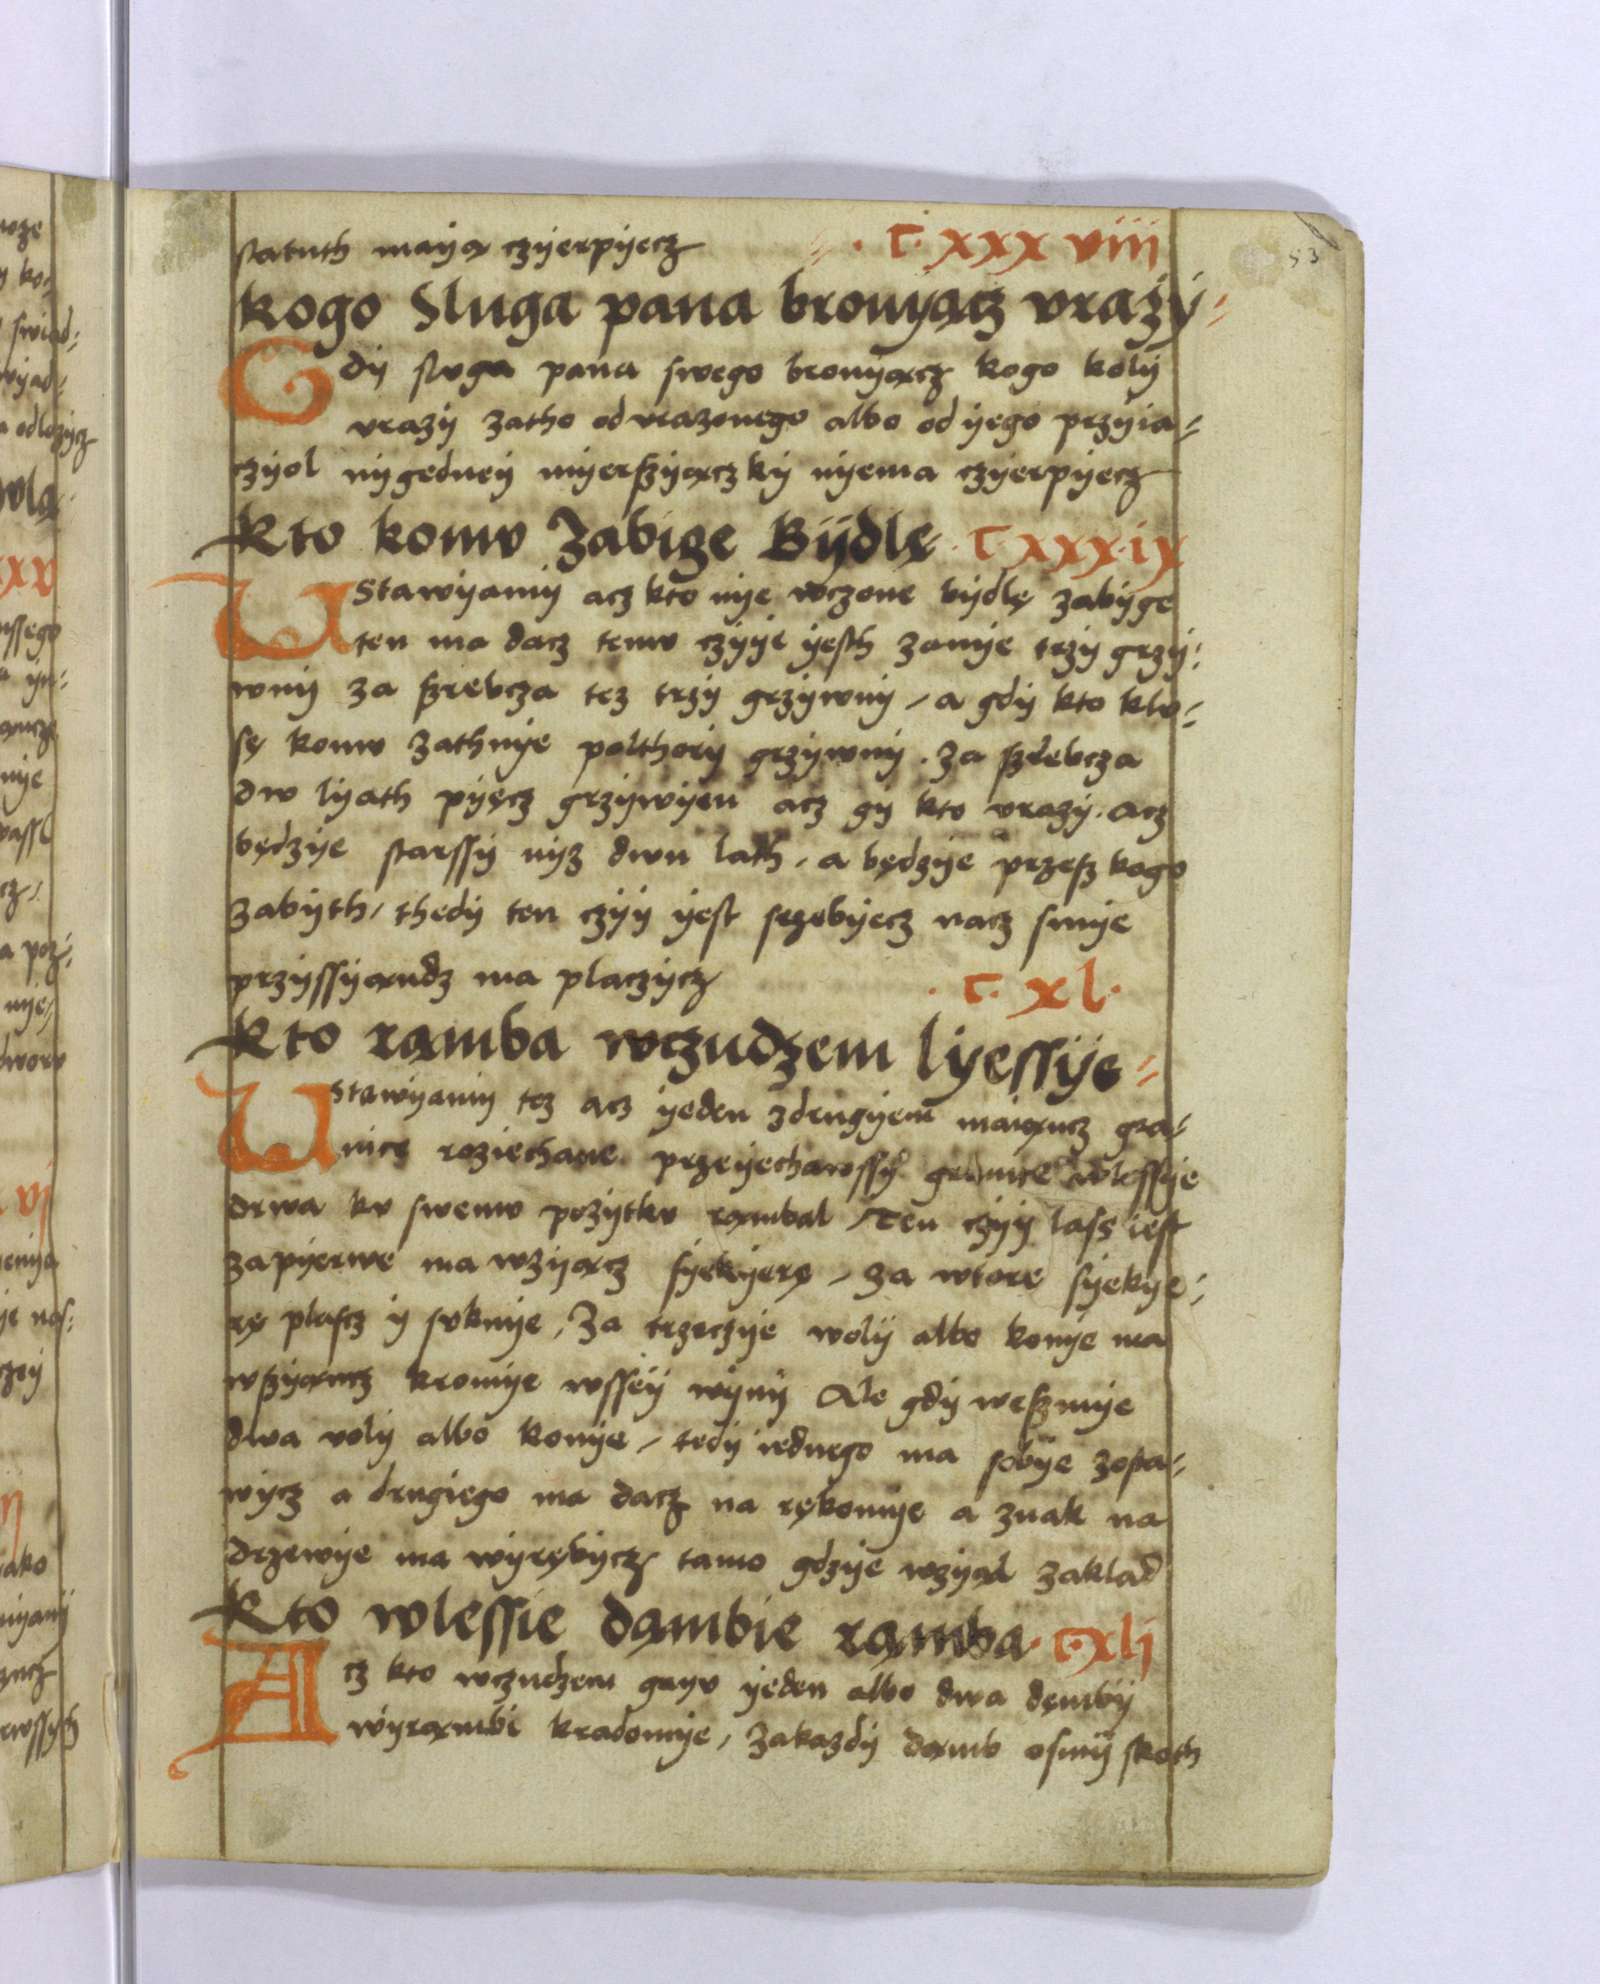 statuth mayą czyerpyecz · C· xxx viii
53
Kogo Sluga pana bronyącz vrazy
Gdy sluga pana swego bronyącz kogo koly
vrazy zatho od vrazonego albo od yego przyia-
czyol nygedney myerszyączky nyema czyerpyecz
Kto komv Zabige Bydlę · C xxx·ix
VStawyamy acz kto nye vczone bydlę zabyge
ten ma dacz temv czyye yesth zanye trzy grzy-
wny za szrebcza tez trzy grzywny / a gdy kto klv-
sę komv zathnye polthory grzywny . za szrebcza
dw lyath pyęcz grzywyen acz gy kto vrazy . acz
będzye starssy nyz dwu lath / a będzye przesz kogo
zabyth / thedy ten czyy yest sezebyecz nacz smye
przyssyąndz ma placzycz · C· xl·
Kto rąmba wczudzem lyessye
VStawyamy tez acz yeden zdrugyem maiąncz gra-
nicę roziechane przeyechawssy granice wlessye
drwa kv swemv pozytkv rąmbal / Ten czyy lass iest
zapyerwe ma wzyącz syekyerę / za wtore syekye-
rę plascz y svknye / Za trzeczye woly albo konye ma
wszyąncz kromye wssey wyny Ale gdy weszmye
dwa voly albo konye / tedy iednego ma sobye zosta-
wycz a drugiego ma dacz na rękomye a znak na
drzewye ma wyrębycz tamo gdzye wzyąl zaklad
Kto wlessie dąmbie rąmba · C·xlj
Acz kto wczudzem gayv yeden albo dwa dęmby
wyrąmbi kradomye / zakazdy dąmb osmy skoth